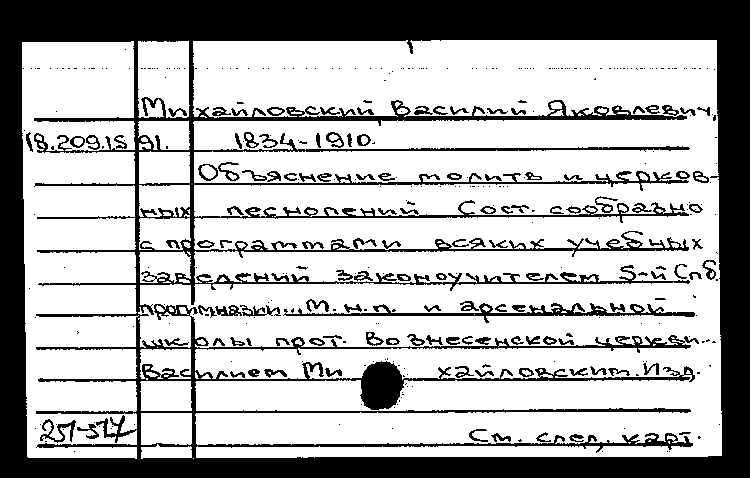 Михайловский, Василий Яковлевич,
18.209.15 91. 1834-1910.
Объяснение молитв и церков-
ных песнопений Сост. сообразно
с программами всяких учебных
заведений законоучителем 5-й Спб.
прогимназии... М.н.п. и арсенальной
школы, прот. Вознесенской церкви...
Василием Михайловским. Изд.
251-517 См. след. карт.